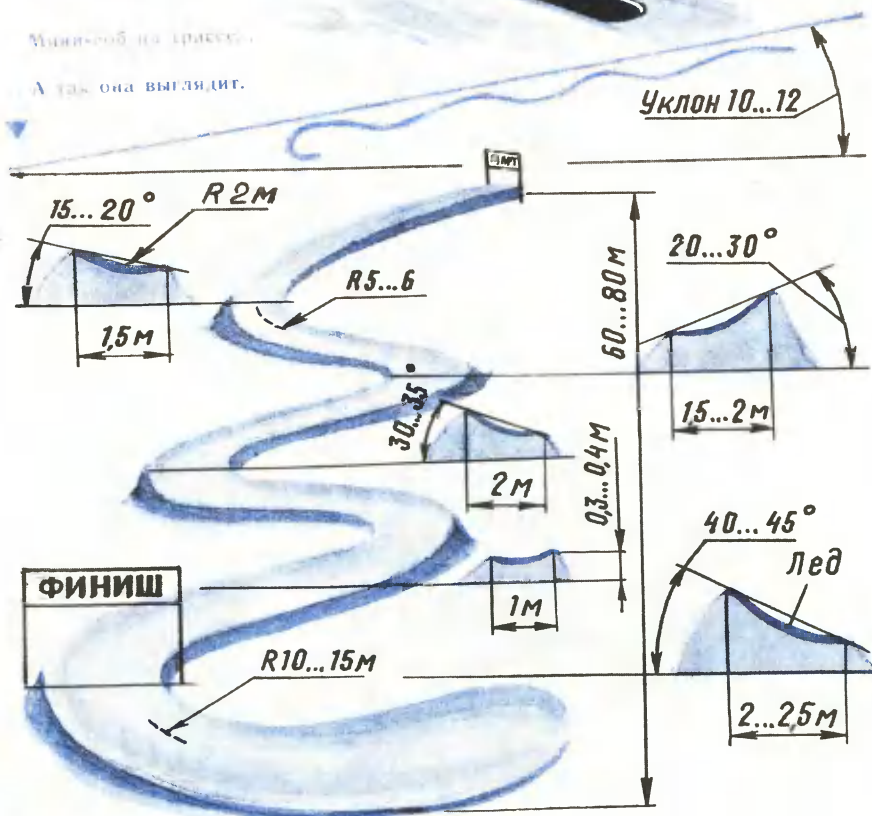 Мини-боб на трассе.
А так она выглядит.
Уклон 10...12
СТАРТ
15...20°
R 2м
R5...6
1,5м
60...80м
20...30°
1,5...2м
30...35°
2м
0,3...0,4м
1м
40...45°
Лед
2...2,5м
ФИНИШ
R10...15м